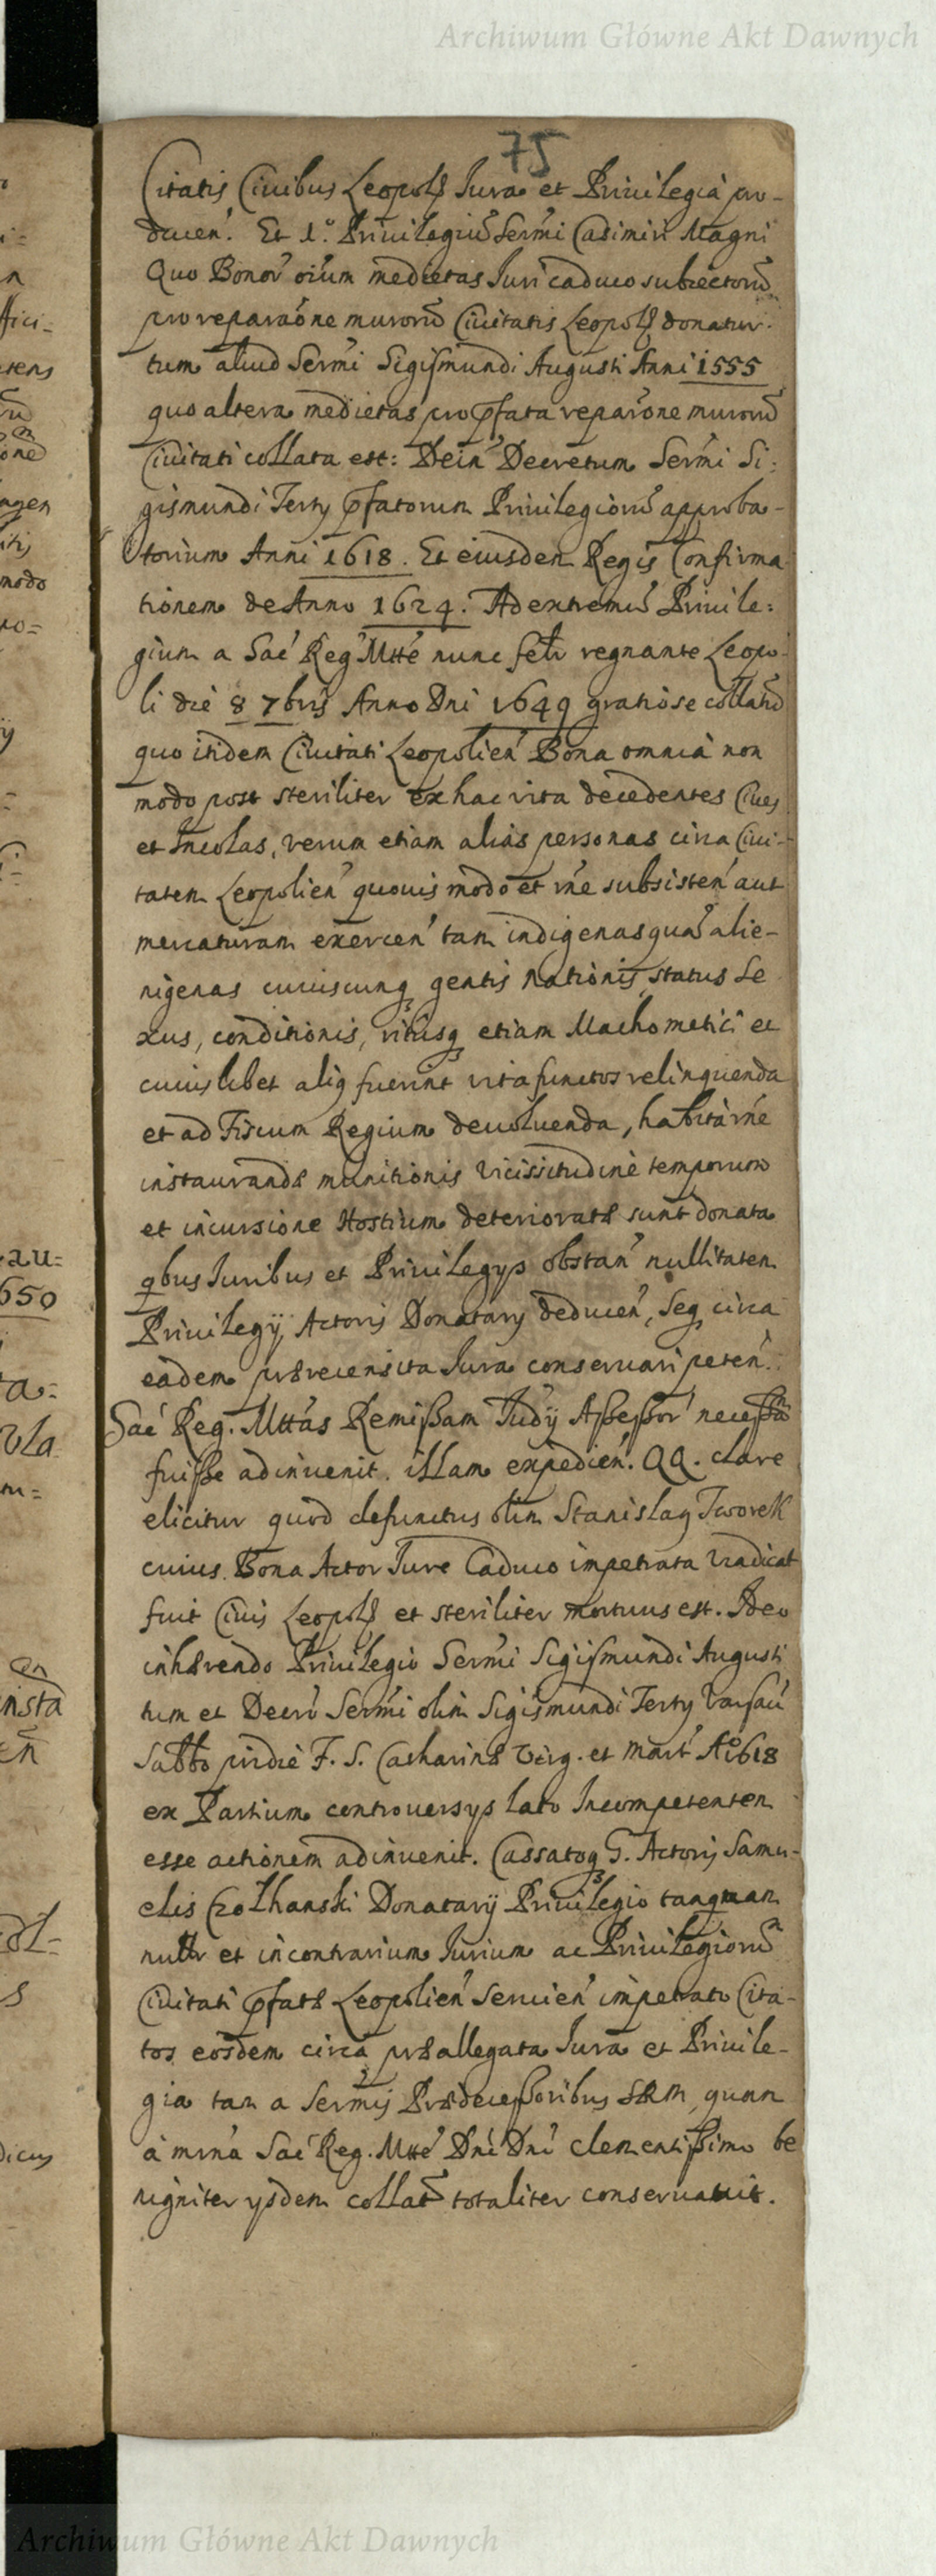 Archiwum Główne Akt Dawnych
75
Citatis Ciuibus Leopoł Iura et Priuilegia pro-
ducen̄. Et 1o. Priuilegiū Sermi Casimiri Magni
Quo Bonor̄ oīum medietas Iuri caduco subiectorū
pro reparaōne murorū Ciuitatis Leopoł donatur.
tum aliud Sermi Sigismundi Augusti Anni 1555
quo altera medietas pro pfata reparōne murorū
Ciuitati collata est: Dein̄ Decretum Sermi Si:
gismundi Terty pfatorum Priuilegiorū approba-
torium Anni 1618. Et eiusdem Regis Confirma
tionem de Anno 1624. Ad extremū Priuile:
gium a Saē Reg Mtte nunc felr regnante Leopo-
li die 8 7bris Anno Dni 1649 gratiose collatū
quo itidem Ciuitati Leopolien̄ Bona omnia non
modo post steriliter ex hac vita decedentes Ciues
et Incolas, verum etiam alias personas circa Ciui-
tatem Leopolien̄ quouis modo et rñe subsisten̄ aut
mercaturam exercen̄ tam indigenas quā alie-
nigenas cuiuscunq gentis nationis, status Se
xus, conditionis, ritusq etiam Machometici et
cuiuslibet aliq fuerint vita functos relinquenda
et ad Fiscum Regium deuoluenda, habita rñe
instaurandæ munitionis vicissitudine temporum
et incursione Hostium deterioratæ sunt donata
qbus Iuribus et Priuilegys obstan̄ nullitatem
Priuilegij Actoris Donatary deducen̄, Seq circa
eadem prærecensita Iura conseruari peten̄.
Saē Reg. Mttas Remissam Iudÿ Assessor̄ necessa
fuisse adinuenit. illam expedien̄. QQ. clare
elicitur quod defunctus olim Stanislaq Tworek
cuius Bona Actor Iure Caduco impetrata vradicat
fuit Ciuis Leopoł et steriliter mortuus est. Ideo
inhærendo Priuilegio Sermi Sigismundi Augusti
tum et Decrō Sermi olim Sigismundi Terty Varsau̅
Sabbo pridie F. S. Catharinæ Virg. et Mart̄ Ao 1618
ex Partium controuersys lato Incompetentem
esse actionem adinuenit. Cassatoq G. Actoris Samu-
elis Czołhanski Donatarÿ Priuilegio tanquam
nullr et incontrarium Iurium ac Priuilegiorū
Ciuitati pfatæ Leopolien̄ Seruien̄ impetrato Cita-
tos eosdem circa præallegata Iura et Priuile-
gia tam a Sermis Prædecessoribus SRM, quam
a mrna Saē Reg. Mtte Dni Dni clementissimo be
nigniter ysdem collat̄ totaliter conseruauit.
Archiwum Główne Akt Dawnych